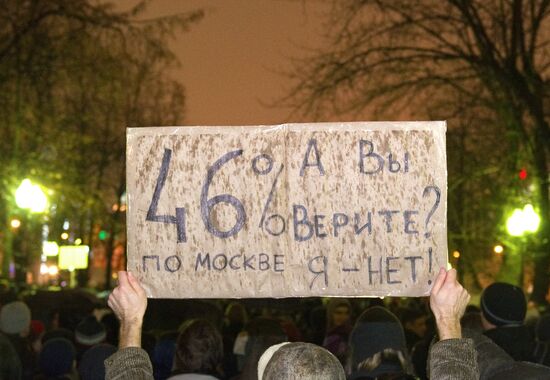 46% А Вы
ВЕРИТЕ?
ПО МОСКВЕ Я - НЕТ!